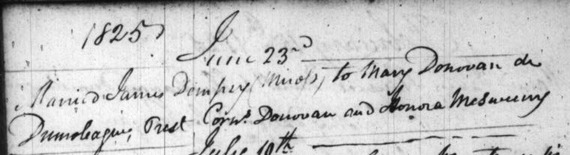 1825
June 23rd
Married James Dempsey to Mary Donovan de
Dunmleague, Prest Corns. Donovan and Honora McSweeny
July 19th